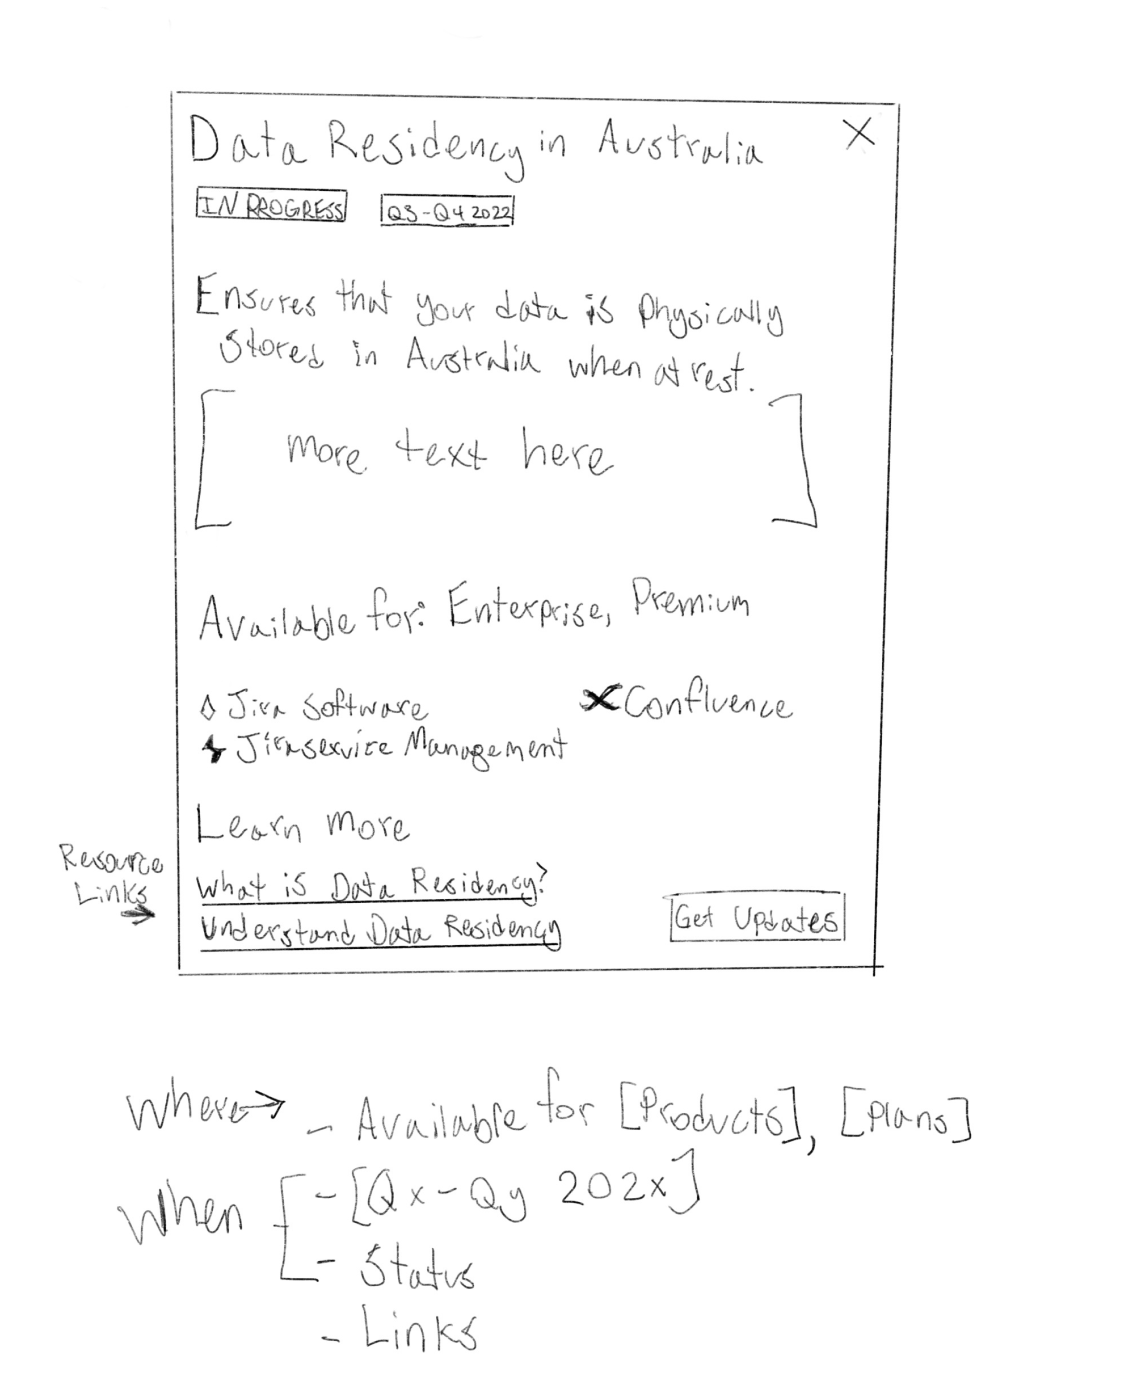 Data Residency in Australia X
IN PROGRESS Q3-Q4 2022
Ensures that your data is physically
stored in Australia when at rest.
[ more text here ]
Available for: Enterprise, Premium
Jira Software Confluence
Jira service Management
Learn more
Resource
Links →
What is Data Residency?
Understand Data Residency
Get Updates
Where → - Available for [Products], [Plans]
When [ - [Qx-Qy 202x]
- Status
- Links